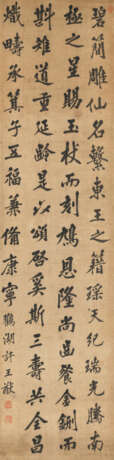 碧簡雕仙名繫東王之籍瑤天紀瑞光騰南
極之星賜玉杖而刻鳩恩隆尚齒餐金鉶而
斟雉道重延齡是以頌啓奚斯三壽共全昌
熾疇承箕子五福兼備康寧 鵝湖許王猷